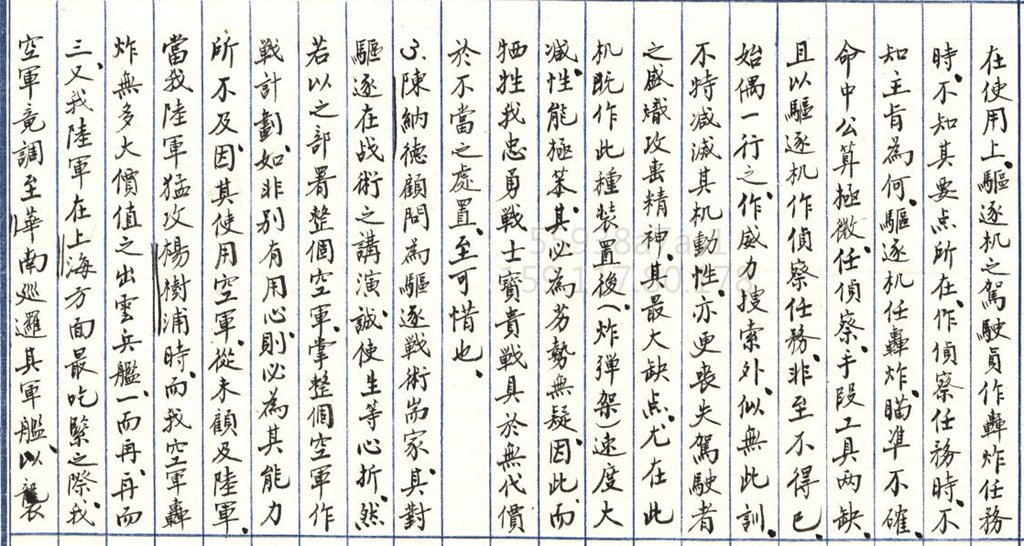 在使用上、驅逐机之駕駛員作轟炸任務
時、不知其要点所在、作偵察任務時、不
知主旨為何、驅逐机任轟炸、瞄準不確、
命中公算極微、任偵察、手段工具兩缺、
且以驅逐机作偵察任務、非至不得已、
始偶一行之、作威力搜索外、似無此訓、
不特減滅其机動性、亦更喪失駕駛者
之盛熾攻击精神、其最大缺点、尤在此
机既作此種裝置後、（炸弹架）速度大
減、性能極苶、其必為劣勢無疑、因此、而
牺牲我忠勇戰士寶貴戰具於無代價
於不當之處置、至可惜也、
3、陳納德顧問為驅逐戰術耑家、其對
驅逐在战術之講演、誠使生等心折、然
若以之部署整個空軍、掌整個空軍作
戰計劃、如非別有用心、則必為其能力
所不及、因其使用空軍、從未顧及陸軍、
當我陸軍猛攻楊樹浦時、而我空軍轟
炸無多大價值之出雲兵艦、一而再、再而
三、又我陸軍在上海方面最吃緊之際、我
空軍竟調至華南巡邏其軍艦、以襲